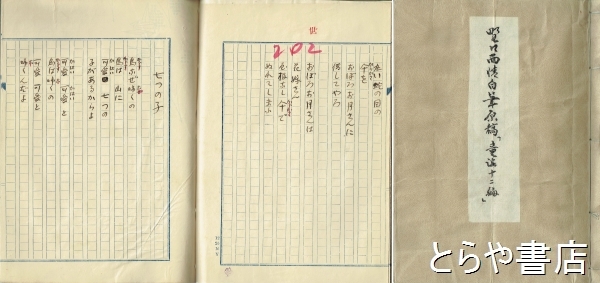 七つの子
烏なぜ啼くの
烏は山に
可愛い七つの
子があるからよ
可愛 可愛と
烏は啼くの
可愛 可愛と
啼くんだよ
202
蛇の目の
傘を
おぼろお月さんに
貸してやろ
おぼろお月さんは
花嫁さん
ぬれてしまふ
野口雨情自筆原稿「童謡十二編」
とらや書店